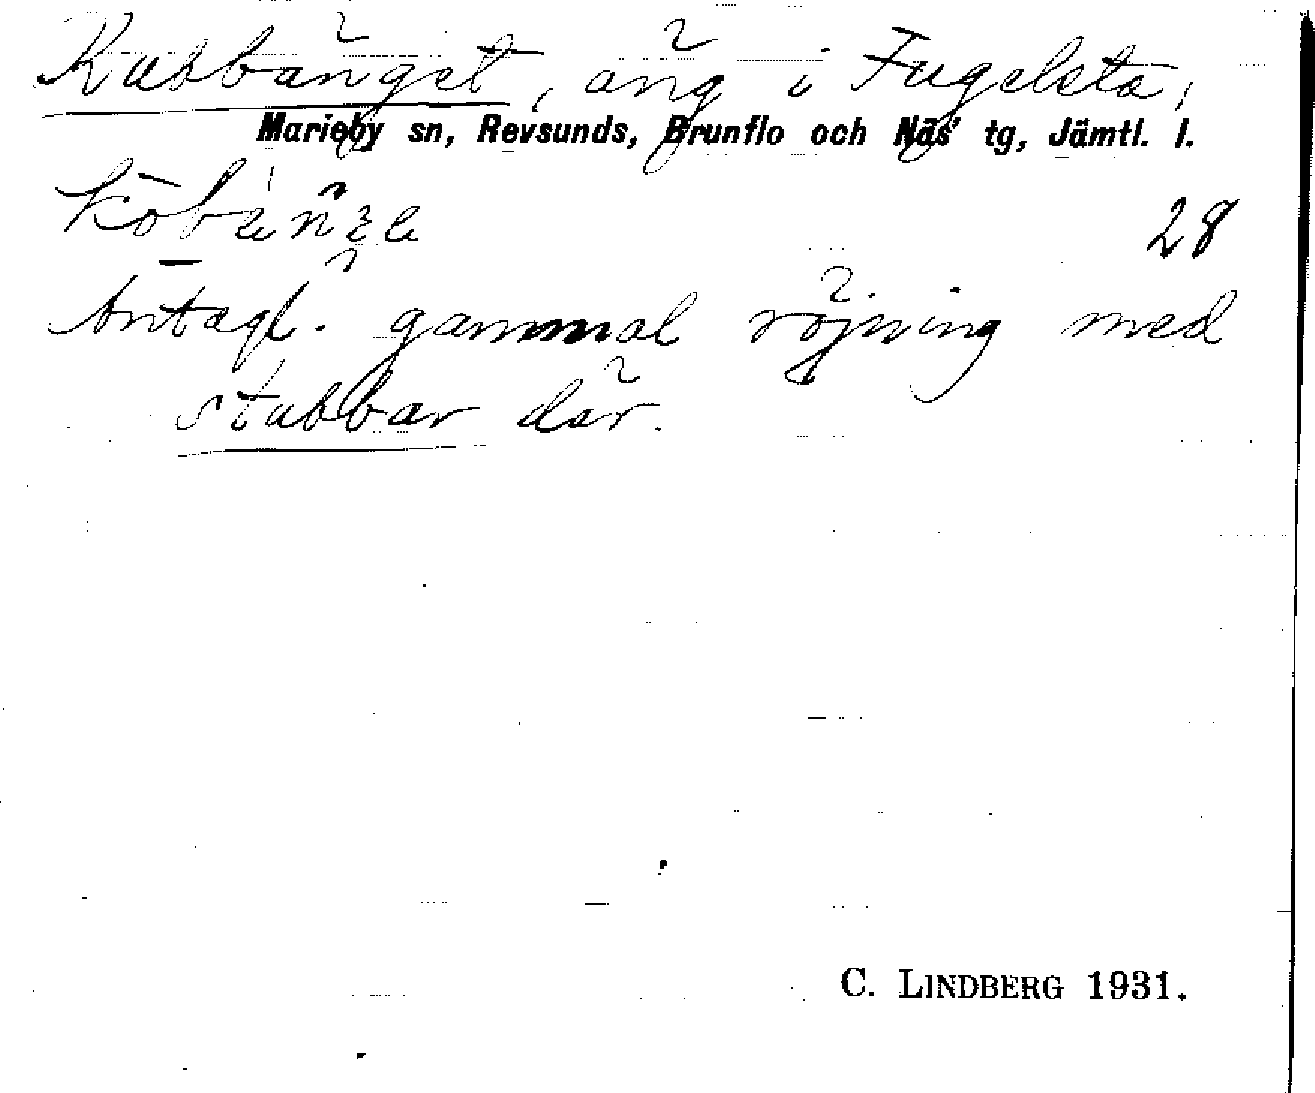 Kubbänget, äng i Fugelsta,
Marieby sn, Revsunds, Brunflo och Näs' tg, Jämtl. l.
28
Antagl. gammal röjning med
stubbar där.
C. LINDBERG 1931.